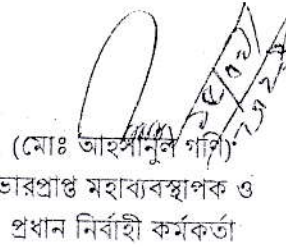 (মোঃ আহসানুল গণি)
ভারপ্রাপ্ত মহাব্যবস্থাপক ও
প্রধান নির্বাহী কর্মকর্তা